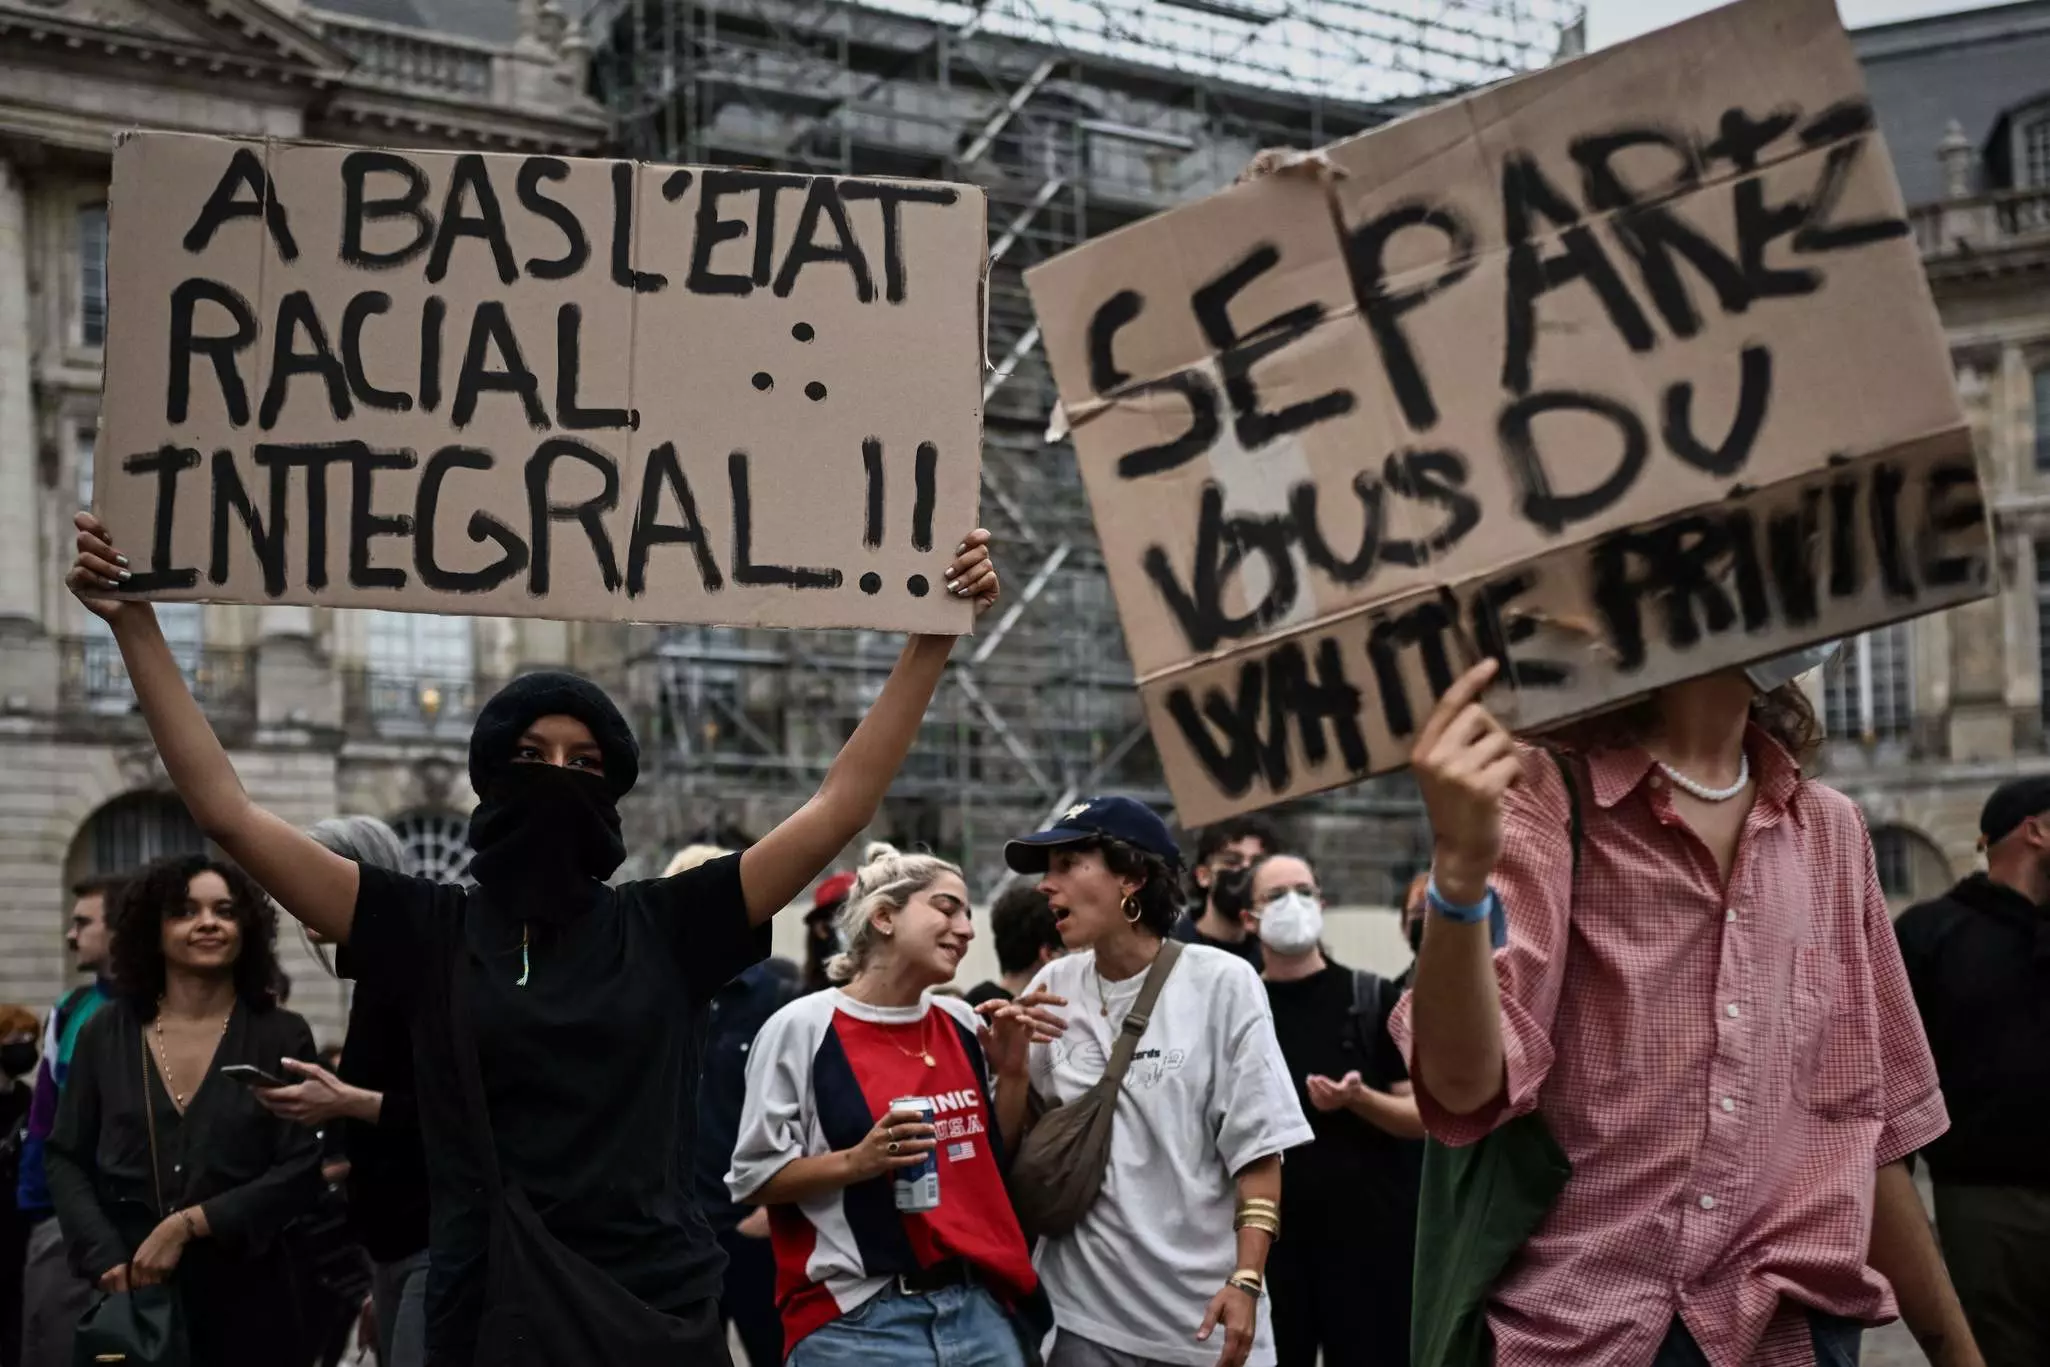 A BAS L'ETAT
RACIAL
INTEGRAL !!
SEPAREZ
VOUS DU
WHITE PRIVILE
NIC
USA
cords